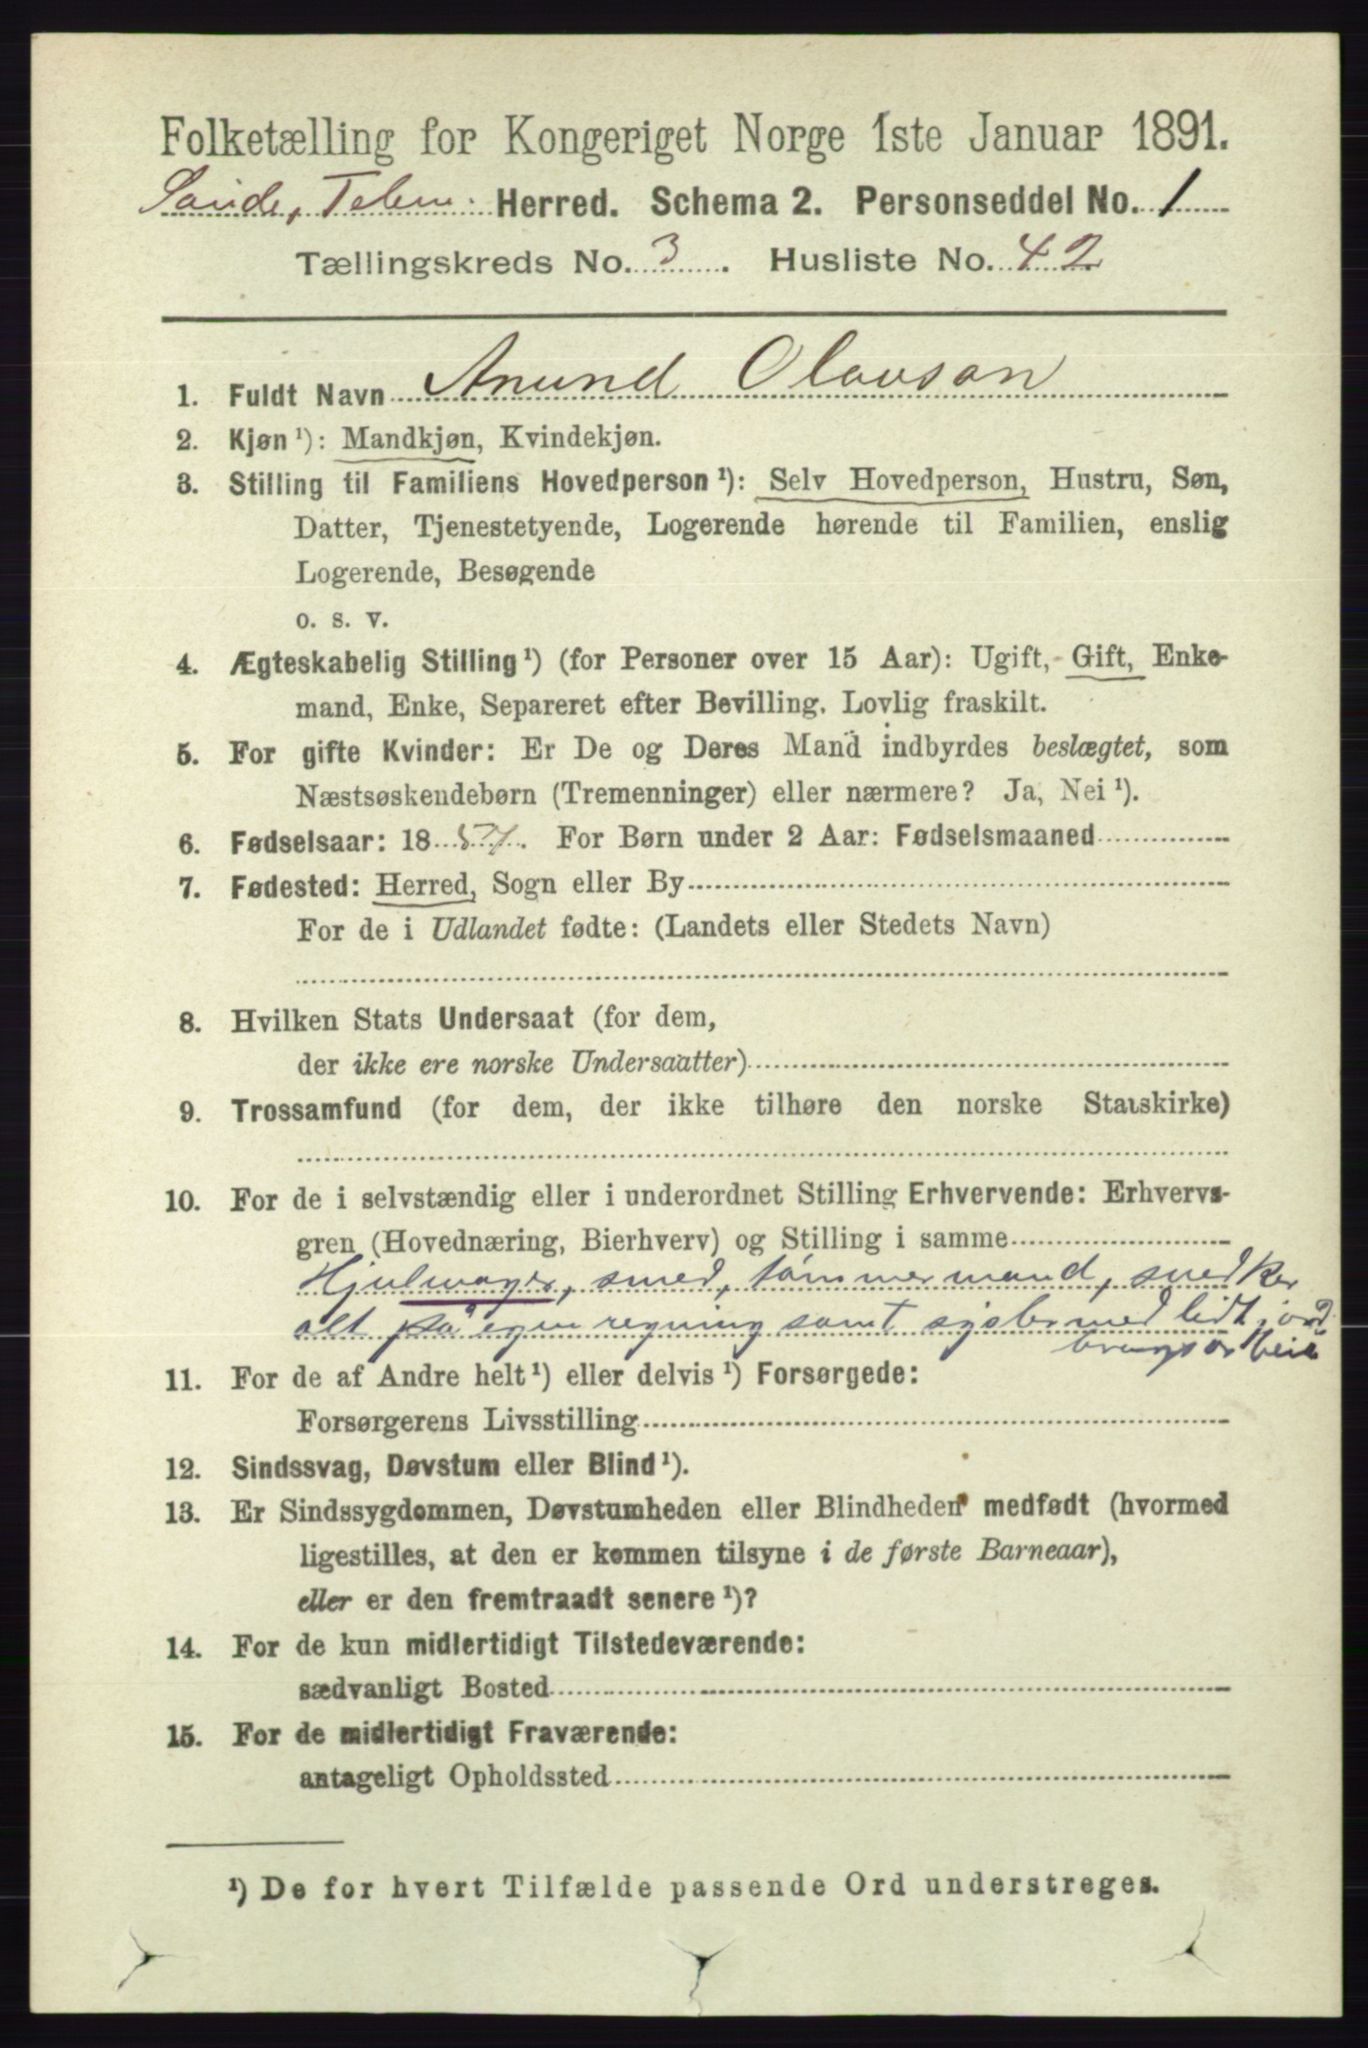 Folketælling for Kongeriget Norge 1ste Januar 1891.
Herred. Schema 2. Personseddel No. 1
Tællingskreds No. 3. Husliste No. 42
1. Fuldt Navn Anund Olavson
2. Kjøn ¹): Mandkjøn, Kvindekjøn.
3. Stilling til Familiens Hovedperson ¹): Selv Hovedperson, Hustru, Søn,
Datter, Tjenestetyende, Logerende hørende til Familien, enslig
Logerende, Besøgende
o. s. v.
4. Ægteskabelig Stilling ¹) (for Personer over 15 Aar): Ugift, Gift, Enke-
mand, Enke, Separeret efter Bevilling. Lovlig fraskilt.
5. For gifte Kvinder: Er De og Deres Mand indbyrdes beslægtet, som
Næstsøskendebørn (Tremenninger) eller nærmere? Ja, Nei ¹).
6. Fødselsaar: 1857. For Børn under 2 Aar: Fødselsmaaned
7. Fødested: Herred, Sogn eller By
For de i Udlandet fødte: (Landets eller Stedets Navn)
8. Hvilken Stats Undersaat (for dem,
der ikke ere norske Undersaatter)
9. Trossamfund (for dem, der ikke tilhøre den norske Statskirke)
10. For de i selvstændig eller i underordnet Stilling Erhvervende: Erhvervs-
gren (Hovednæring, Bierhverv) og Stilling i samme
Hjulmager, smed, tømmermand, snedker
alt på egen regning samt sysler med lidt jord
brugsarbeie
11. For de af Andre helt ¹) eller delvis ¹) Forsørgede:
Forsørgerens Livsstilling
12. Sindssvag, Døvstum eller Blind ¹).
13. Er Sindssygdommen, Døvstumheden eller Blindheden medfødt (hvormed
ligestilles, at den er kommen tilsyne i de første Barneaar),
eller er den fremtraadt senere ¹)?
14. For de kun midlertidigt Tilstedeværende:
sædvanligt Bosted
15. For de midlertidigt Fraværende:
antageligt Opholdssted
¹) De for hvert Tilfælde passende Ord understreges.